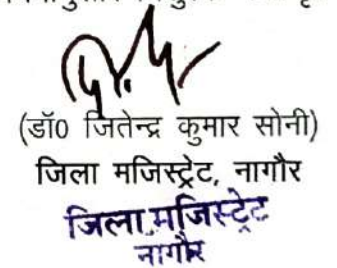 (डॉ0 जितेन्द्र कुमार सोनी)
जिला मजिस्ट्रेट, नागौर
जिला मजिस्ट्रेट
नागौर